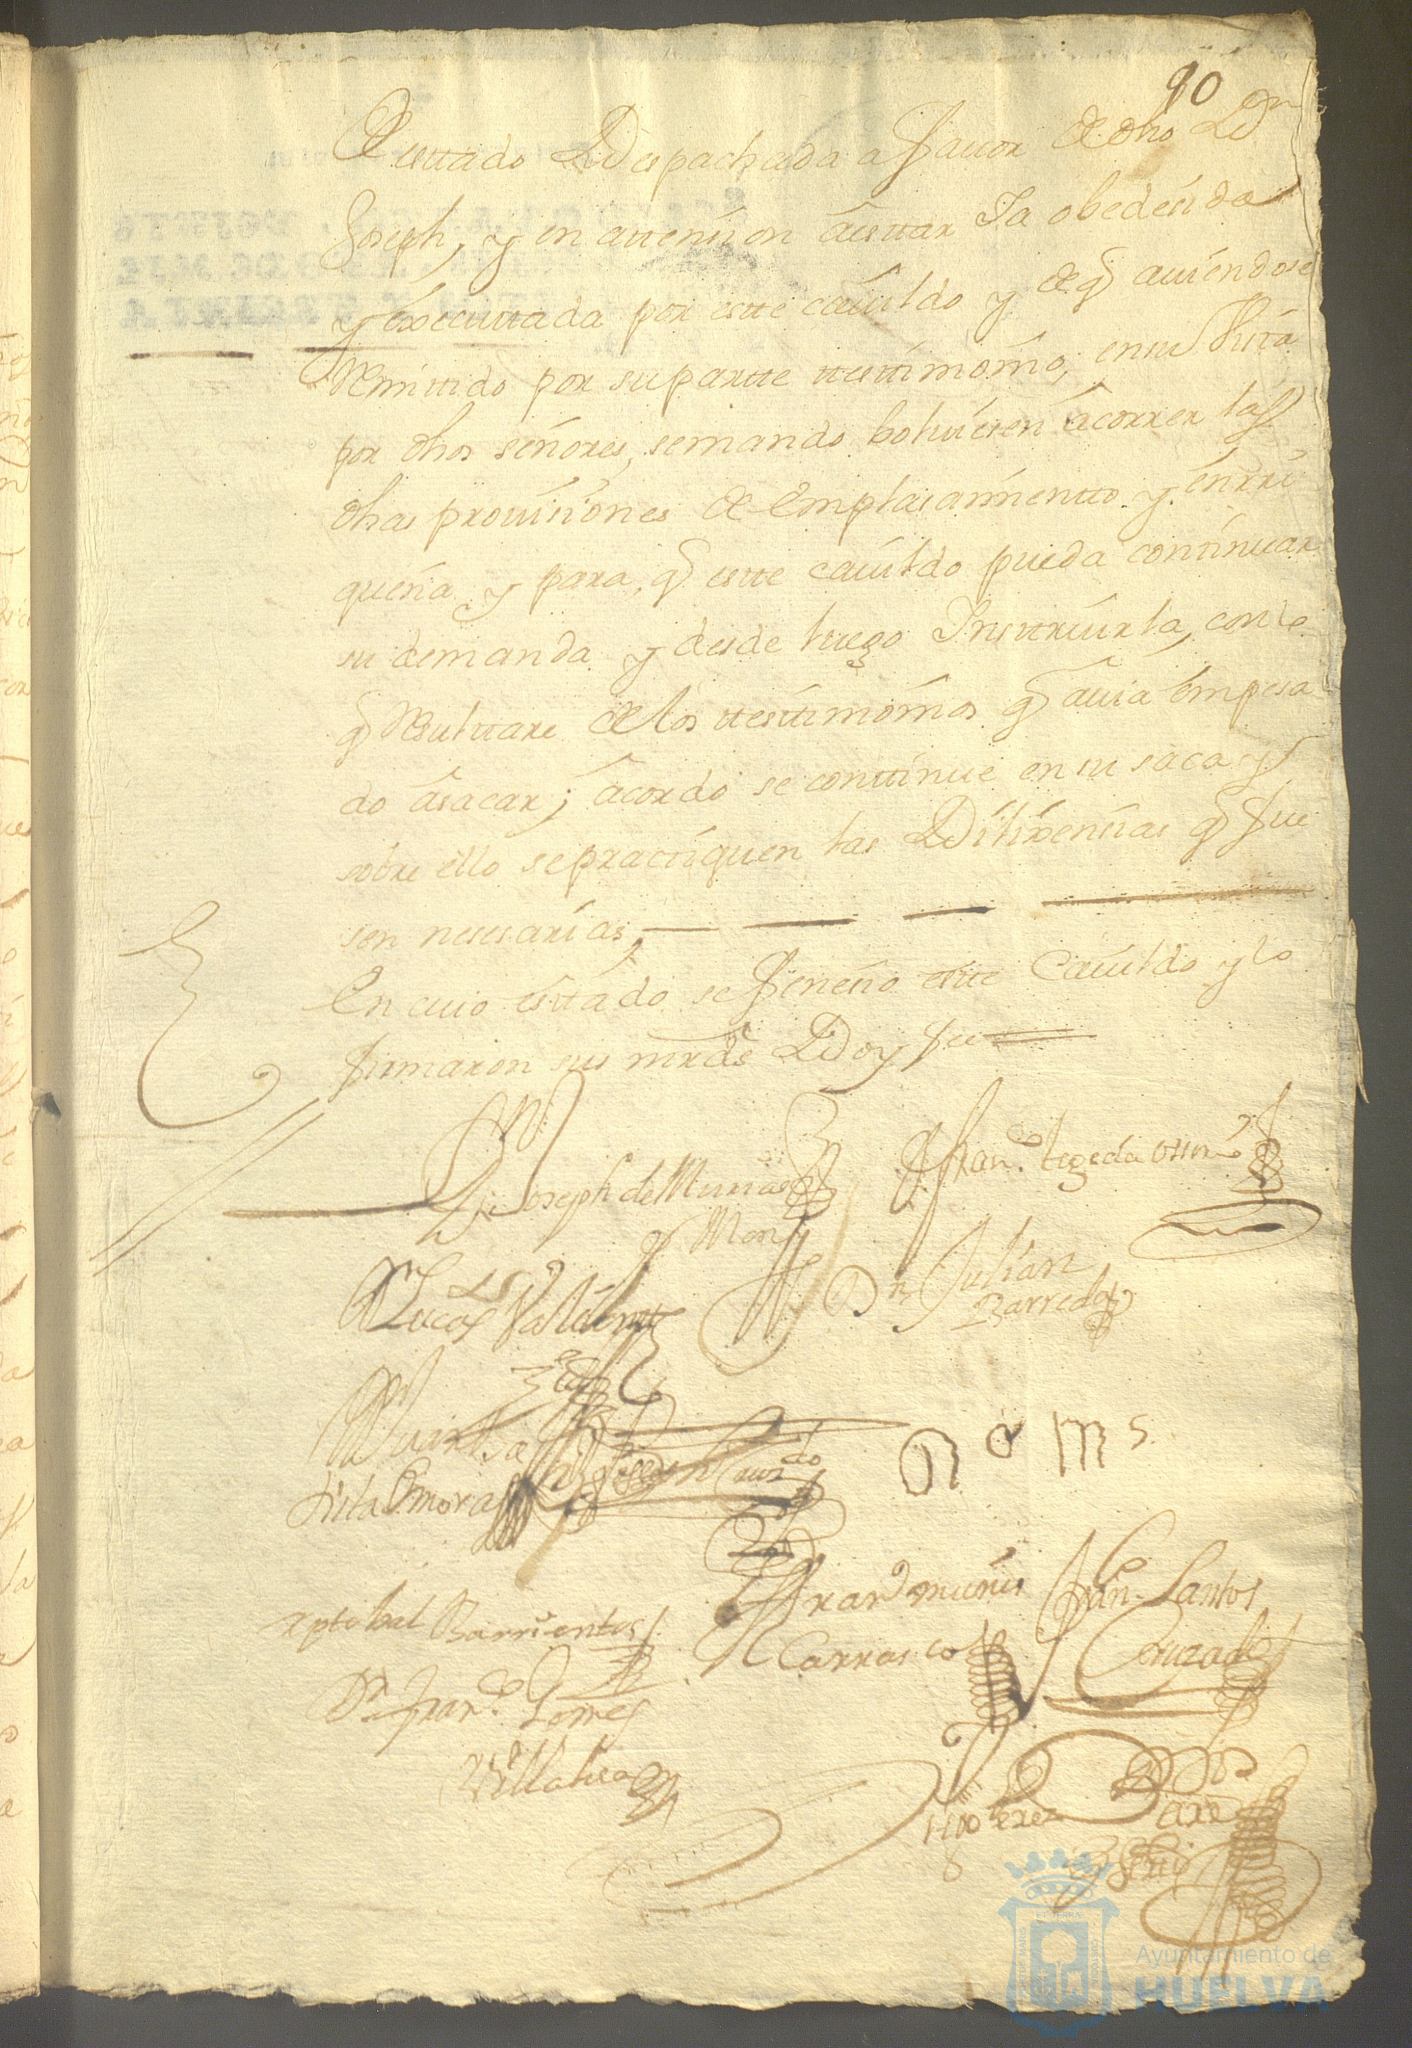 90
Cittado Despachada a favor de dho Dn
Joseph, y en attension áesttar Ya obedesida
y executtada por estte cavildo y de q aviendose
Remittido por su partte ttesttimonio, en su Vista
por dhos señores, se mando bolviesen ácorrer las
dhas provisiones de emplasamientto y énrri
queña y para, q estte cavildo pueda conttinuar
su demanda y desde luego Ynsttruirla, con lo
q Resulttare de los ttesttimonios q avia émpesa
do ásacar; ácordo se conttinue en su saca y q
sobre ello se practtiquen las Dilixensias q fue
sen nesesarias,
En cuio esttado se fenesio estte Cavildo y lo
firmaron sus mrds Doy fee
Dn Joseph de Munas
y Mon
Franco tegeda
Lucas Valiente
Dn Julian
Barreda
Juan
R o M s
xptobal Barrientos
Fran munis
Carrasco
Fran Santos
Cruzado
Dn Franco Gomes
Villalva
Perez
Ayuntamiento de
HUELVA